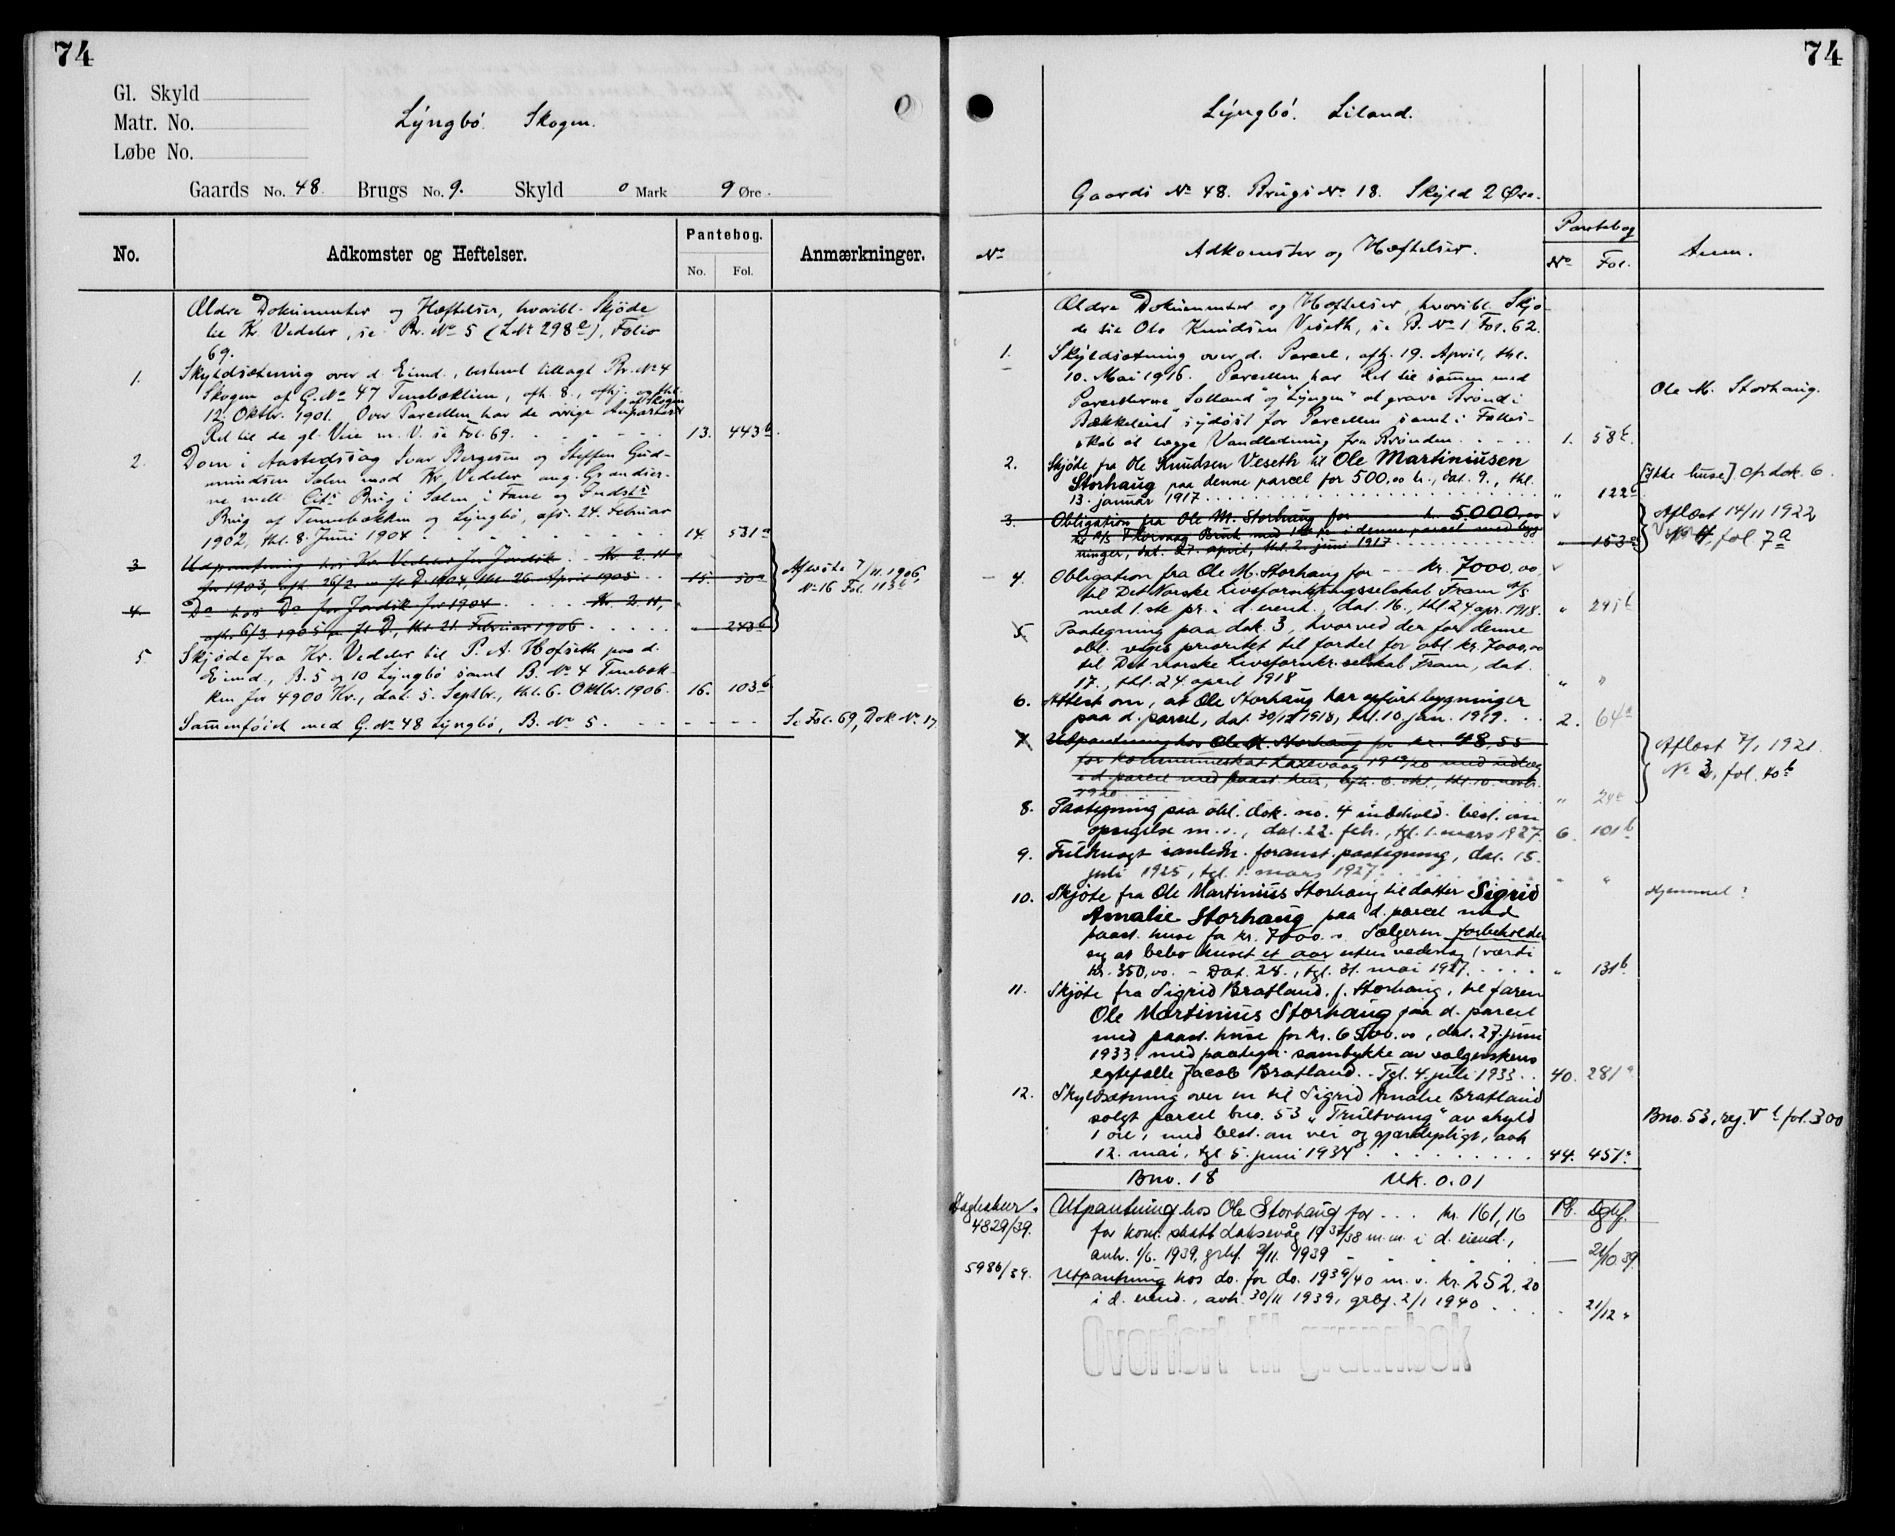 74
Gl. Skyld
Matr. No.
Løbe No.
Lÿngbö. Skogen.
0
Gaards No. 48. Brugs No. 9. Skyld 0 Mark 9 Øre.
No.
Adkomster og Heftelser.
Pantebog.
No. Fol.
Anmærkninger.
Ældre Dokumenter og Hæftelser, hvoribl. Skjöde
til Kr. Vedeler, se Br. No 5 (L.Nr 298a), Folio
69.
1. Skyldsætning over d. Eiend., bestemt tillagt Br. No 4
Skogen af G. No 47 Tennebækken, afh. 8., afhj. og thl.
12. Oktbr. 1901. Over Parcellen har de övrige Anpartser af Skogen
Ret til de gl. Veie m. V. se Fol. 69. 13. 443b
2. Dom i Aastedssag Ivar Bergesen og Steffen Gud-
mundsen Salen mod Kr. Vedeler ang. Grændser-
ne mell. Cit. Brug i Salen i Fane og Indst.
Brug af Tennebækken og Lÿngbö, afs. 24. Februar
1902, thl. 8. Juni 1904 14. 531a
3 Udpantning hos Kr. Vedeler for Jordsk. Kr. 2.11
for 1903, afh. 26/2 1904 thl. 26. April 1905 15. 50a
Aflöste 7/11. 1906,
No 16 Fol. 113b
4. Do hos Do for Jordsk. for 1904 Kr. 2.11,
afh. 6/3 1905, thl. 21. Februar 1906 243b
5 Skjöde fra Kr. Vedeler til P. A. Hofseth paa d.
Eiend., B. 5 og 10 Lÿngbö samt B. No 4 Tennebæk-
ken for 4900 Kr., dat. 5. Septbr., thl. 6. Oktbr. 1906. 16. 103b
Sammenföiet med G. No 48 Lÿngbö, B. No 5. Se Fol. 69, Dok No. 17
74
Lÿngbö. Liland.
Gaards No 48. Brugs No 18. Skyld 2 Øre.
No
Adkomster og Hæftelser.
Pantebog
No Fol.
Anm.
Ældre Dokumenter og Hæftelser, hvoribl. Skjö-
de til Ole Knudsen Veseth, se B. No 1 Fol. 62.
1. Skyldsætning over d. Parcel, afh. 19. April, thl.
10. Mai 1916. Parcellen har Ret til sammen med
Parcellerne "Solland" og "Lÿngen" at grave Brönd i
"Bækkeleiet" sydöst for Parcellen samt i Fælles-
skab at lægge Vandledning fra Brönden 1. 58b.
Ole M. Storhaug.
2. Skjöde fra Ole Knudsen Veseth til Ole Martiniusen
Storhaug paa denne parcel for 500,00 kr., dat. 9., thl.
13. januar 1917 " 122b
[Ikke huse] cfr. dok. 6.
3. Obligation fra Ole M. Storhaug for kr. 5000,00
til A/S Thorvaag Bruk med 1ste pr. i denne parcel med byg-
ninger, dat. 27. april, thl. 2. juni 1917 " 153a
Aflæst 14/11 1922
No 4 fol 7a
4. Obligation fra Ole M. Storhaug for kr. 7000,00
til Det Norske Livsforsikringsselskab Fram A/S
med 1.ste pr. i d. eiend., dat. 16., thl. 24 apr. 1918. " 245b
5 Paategning paa dok. 3, hvorved der for denne
obl. viges prioritet til fordel for obl. kr. 7000,00
til Det norske Livsforsikr. selskab, Fram, dat.
17., thl. 24. april 1918 " "
6. Attest om, at Ole Storhaug har opfört bygninger
paa d. parcel, dat. 30/12 1918, thl. 10. jan. 1919. 2. 64a
7. Utpantning hos Ole M. Storhaug for kr. 48,55
for kommuneskat Laxevaag 1919/20 med utlæg
i d. parcel med paast. hus, avh. 6. okt., thl. 10. novbr.
1920 " 24a
Aflæst 7/1 1921.
No 3, fol. 40b
8. Paategning paa obl. dok. no. 4 indehold. best. om
opsigelse m. v., dat. 22. feb., tgl. 1. mars 1927. 6. 101b
9. Fuldmagt i anledn. foranst. paategning, dat. 15.
juli 1925, tgl. 1. mars 1927 " "
10. Skjöte fra Ole Martinius Storhaug til datter Sigrid
Amalie Storhaug paa d. parcel med
paast. huse for kr. 7000.00. Sælgeren forbeholder
sig at bebo huset et aar uten vederlag (værdi
kr. 350,00. - Dat. 28., tgl. 31. mai 1927. " 131b
Hjemmel:
11. Skjöte fra Sigrid Bratland, f. Storhaug, til faren
Ole Martinius Storhaug paa d. parcel
med paast. huse for kr. 6500.00, dat. 27. juni
1933. med paategn. samtykke av sælgerskens
egtefælle Jacob Bratland. - Tgl. 4. juli 1933. 40. 281a
12. Skyldsætning over en til Sigrid Amalie Bratland
solgt parcel bno. 53 „Trultvang" av skyld
1 öre, med best. om vei og gjærdepligt, avh.
12. mai, tgl. 5. juni 1934 44. 451a
Bno. 53, reg. V fol. 300
Bno. 18 Mk. 0.01
Dagboknr.
4829/39. Utpantning hos Ole Storhaug for kr. 161,16 Pb. Dgbf.
for kom. skatt Laksevåg 1937/38 m.m. i d. eiend.,
avh. 1/6. 1939, grbf. 2/11. 1939 — 21/10 39.
5986/39. Utpantning hos do. for do. 1939/40 m. v. kr. 252,20
i d. eiend., avh. 30/11 1939, grbf. 2/1 1940 21/12 "
Overført til grunnbok